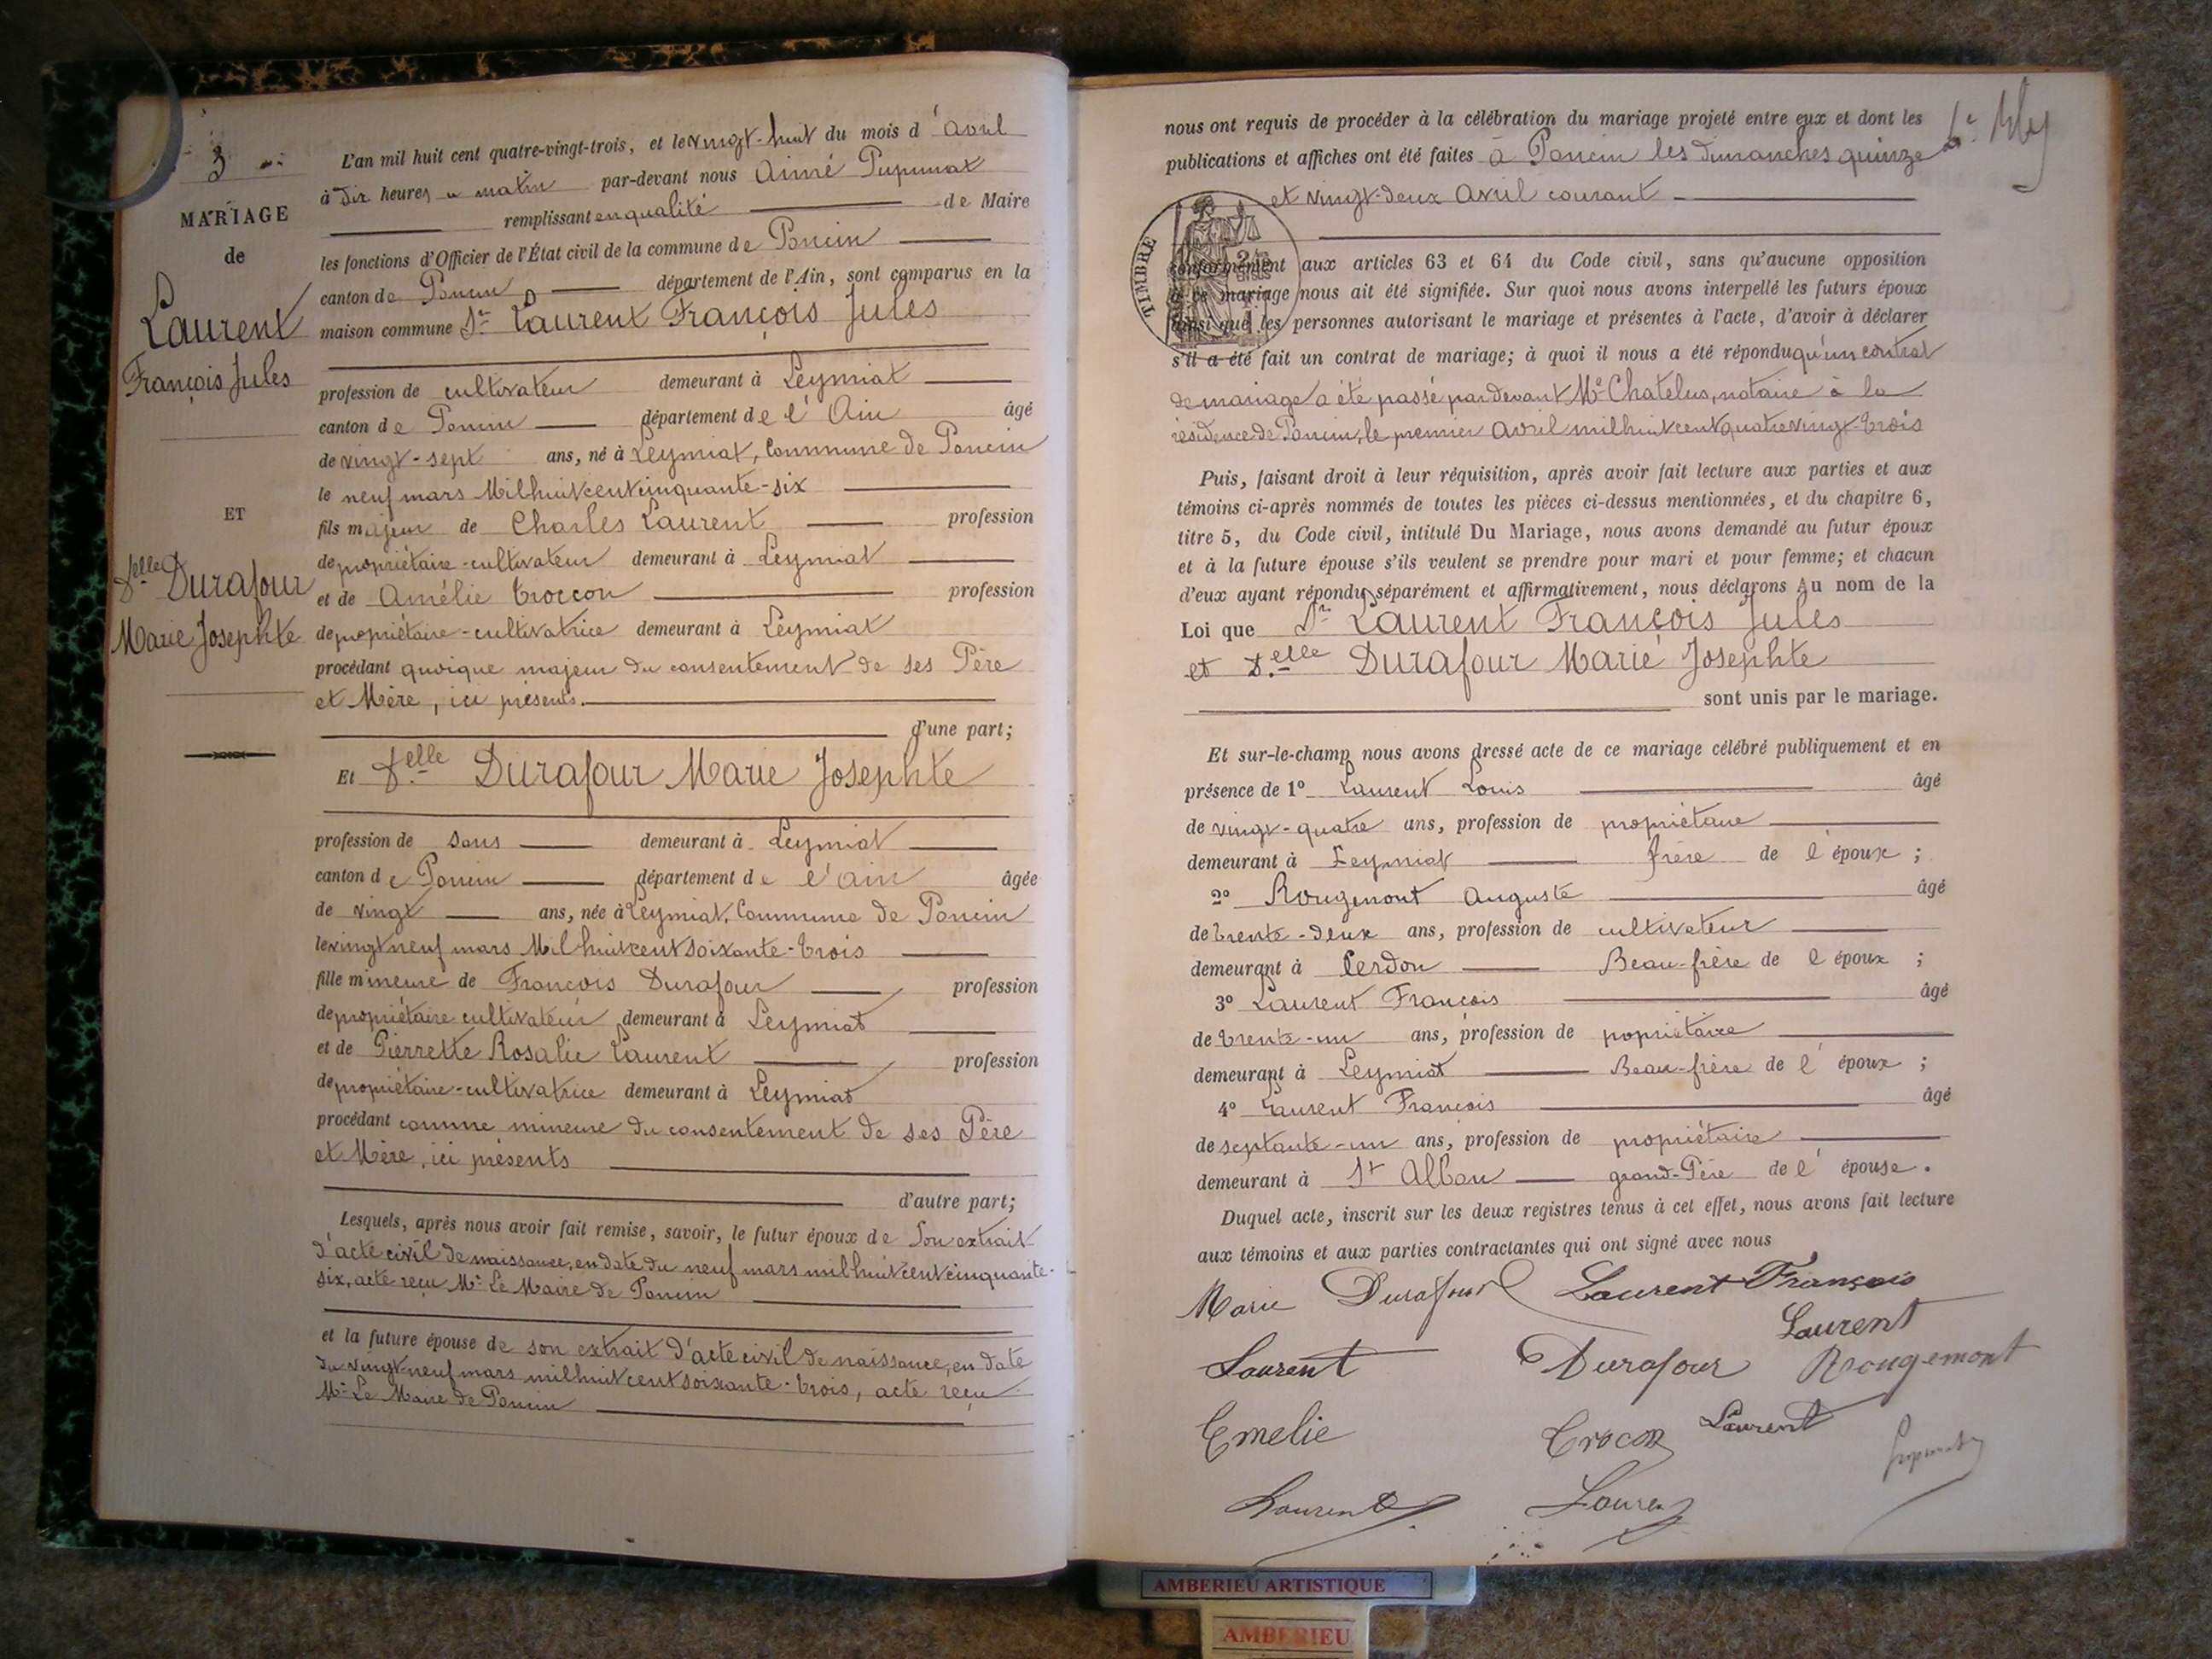 3
MARIAGE
de
Laurent
François Jules
ET
Delle Durafour
Marie Josephte
L'an mil huit cent quatre-vingt-trois, et le vingt-huit du mois d'avril
à dix heures du matin par-devant nous Aimé Pupunat
remplissant en qualité de Maire
les fonctions d'Officier de l'État civil de la commune de Poncin
canton de Poncin département de l'Ain, sont comparus en la
maison commune Sr Laurent François Jules
profession de cultivateur demeurant à Leymiat
canton de Poncin département de l'Ain âgé
de vingt-sept ans, né à Leymiat, Commune de Poncin
le neuf mars Mil huit cent cinquante-six
fils majeur de Charles Laurent profession
de propriétaire-cultivateur demeurant à Leymiat
et de Amélie Troccon profession
de propriétaire-cultivatrice demeurant à Leymiat
procédant quoique majeur du consentement de ses Père
et Mère, ici présents.
d'une part;
Et Delle Durafour Marie Josephte
profession de sans demeurant à Leymiat
canton de Poncin département de l'Ain âgée
de vingt ans, née à Leymiat, Commune de Poncin
le vingt neuf mars Mil huit cent soixante-trois
fille mineure de François Durafour profession
de propriétaire cultivateur demeurant à Leymiat
et de Pierrette Rosalie Laurent profession
de propriétaire-cultivatrice demeurant à Leymiat
procédant comme mineure du consentement de ses Père
et Mère, ici présents
d'autre part;
Lesquels, après nous avoir fait remise, savoir, le futur époux de Son extrait
d'acte civil de naissance, en date du neuf mars mil huit cent cinquante-
six, acte reçu Mr Le Maire de Poncin
et la future épouse de son extrait d'acte civil de naissance, en date
du vingt-neuf mars mil huit cent soixante-trois, acte reçu
Mr Le Maire de Poncin
nous ont requis de procéder à la célébration du mariage projeté entre eux et dont les
publications et affiches ont été faites à Poncin les dimanches quinze
et vingt-deux Avril courant
TIMBRE
conformément aux articles 63 et 64 du Code civil, sans qu'aucune opposition
à ce mariage nous ait été signifiée. Sur quoi nous avons interpellé les futurs époux
ainsi que les personnes autorisant le mariage et présentes à l'acte, d'avoir à déclarer
s'il a été fait un contrat de mariage; à quoi il nous a été répondu qu'un contrat
de mariage a été passé par devant Me Chatelus, notaire à la
résidence de Poncin, le premier Avril mil huit cent quatre vingt-trois
Puis, faisant droit à leur réquisition, après avoir fait lecture aux parties et aux
témoins ci-après nommés de toutes les pièces ci-dessus mentionnées, et du chapitre 6,
titre 5, du Code civil, intitulé Du Mariage, nous avons demandé au futur époux
et à la future épouse s'ils veulent se prendre pour mari et pour femme; et chacun
d'eux ayant répondu séparément et affirmativement, nous déclarons Au nom de la
Loi que Sr Laurent François Jules
et Delle Durafour Marie Josephte
sont unis par le mariage.
Et sur-le-champ nous avons dressé acte de ce mariage célébré publiquement et en
présence de 1o Laurent Louis âgé
de vingt-quatre ans, profession de propriétaire
demeurant à Leymiat frère de l'époux ;
2o Rougemont Auguste âgé
de trente-deux ans, profession de cultivateur
demeurant à Cerdon Beau-frère de l'époux ;
3o Laurent François âgé
de trente-un ans, profession de popriétaire
demeurant à Leymiat Beau-frère de l'époux ;
4o Laurent François âgé
de septante-un ans, profession de propriétaire
demeurant à St Alban grand-Père de l'épouse.
Duquel acte, inscrit sur les deux registres tenus à cet effet, nous avons fait lecture
aux témoins et aux parties contractantes qui ont signé avec nous
Marie Durafour Laurent François
Laurent
Laurent Durafour Rougemont
Emelie Trocon Laurent
Laurent Lauren
AMBERIEU ARTISTIQUE
AMBERIEU